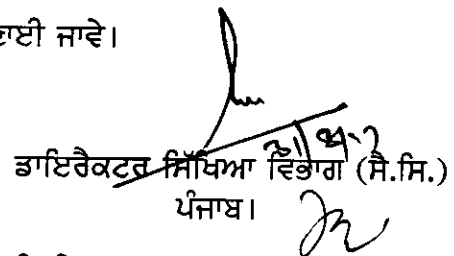 ਣਾਈ ਜਾਵੇ।
ਡਾਇਰੈਕਟਰ ਸਿੱਖਿਆ ਵਿਭਾਗ (ਸੈ.ਸਿ.)
ਪੰਜਾਬ।